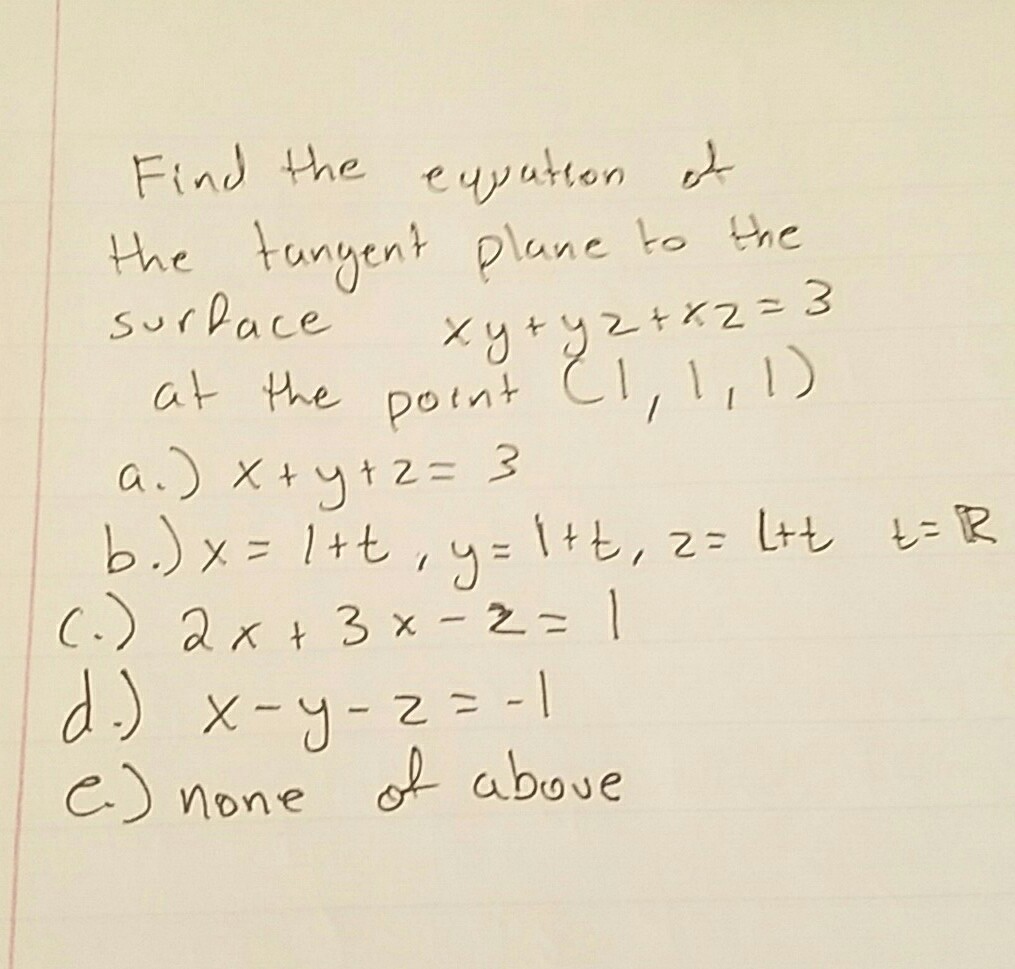 Find the equation of
the tangent plane to the
surface xy+yz+xz=3
at the point (1,1,1)
a.) x+y+z=3
b.) x=1+t, y=1+t, z=1+t t=ℝ
c.) 2x+3x-z=1
d.) x-y-z=-1
e.) none of above